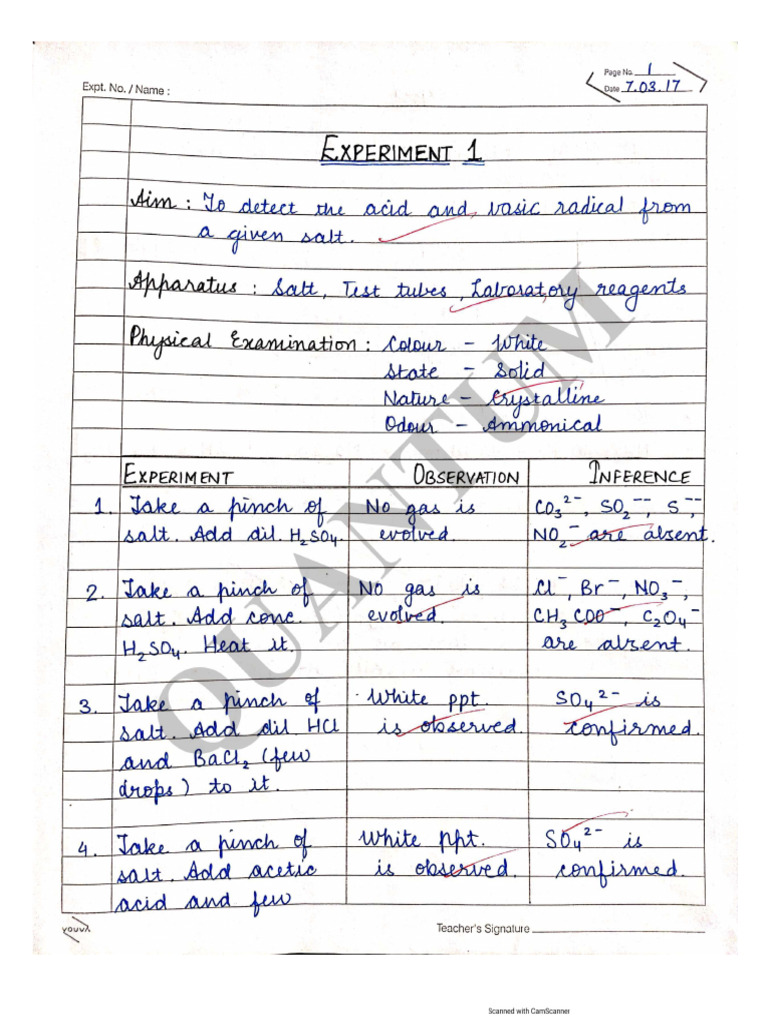 Page No. 1
Expt. No. / Name :
Date 7.03.17
EXPERIMENT 1
Aim : To detect the acid and basic radical from
a given salt.
Apparatus : Salt, Test tubes, Laboratory reagents
Physical Examination : Colour - White
State - Solid
Nature - Crystalline
Odour - Ammonical
EXPERIMENT OBSERVATION INFERENCE
1. Take a pinch of No gas is CO₃²⁻, SO₂⁻⁻, S⁻⁻,
salt. Add dil. H₂SO₄. evolved. NO₂⁻ are absent.
2. Take a pinch of No gas is Cl⁻, Br⁻, NO₃⁻,
salt. Add conc. evolved. CH₃COO⁻, C₂O₄⁻
H₂SO₄. Heat it. are absent.
3. Take a pinch of White ppt. SO₄²⁻ is
salt. Add dil HCl is observed. confirmed.
and BaCl₂ (few
drops) to it.
4. Take a pinch of White ppt. SO₄²⁻ is
salt. Add acetic is observed. confirmed.
acid and few
youva
Teacher's Signature
QUANTUM
Scanned with CamScanner